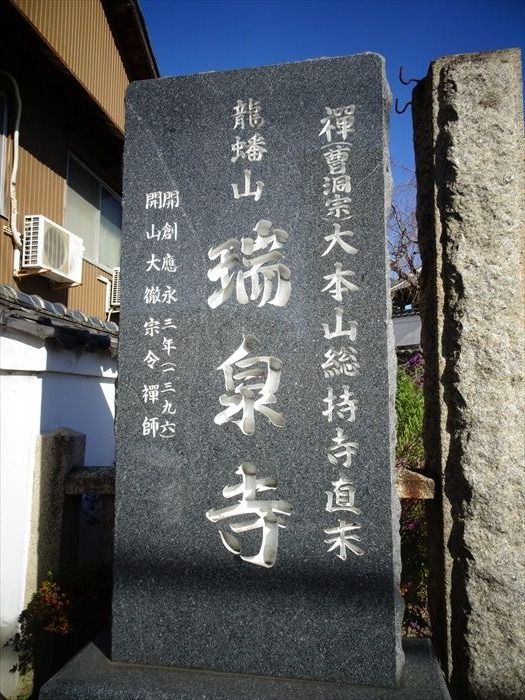 禪(曹洞宗)大本山總持寺直末
龍蟠山 瑞泉寺
開創應永三年(一三九六)
開山大徹宗令禪師